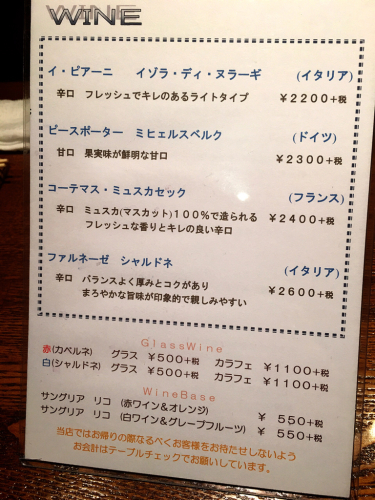 WINE
イ・ピアーニ イゾラ・ディ・ヌラーギ (イタリア)
辛口 フレッシュでキレのあるライトタイプ ￥2200+税
ピースポーター ミヒェルスベルク (ドイツ)
甘口 果実味が鮮明な甘口 ￥2300+税
コーテマス・ミュスカセック (フランス)
辛口 ミュスカ(マスカット)100%で造られる ￥2400+税
フレッシュな香りとキレの良い辛口
ファルネーゼ シャルドネ (イタリア)
辛口 バランスよく厚みとコクがあり ￥2600+税
まろやかな旨味が印象的で親しみやすい
GlassWine
赤(カベルネ) グラス ￥500+税 カラフェ ￥1100+税
白(シャルドネ) グラス ￥500+税 カラフェ ￥1100+税
WineBase
サングリア リコ (赤ワイン&オレンジ) ￥ 550+税
サングリア リコ (白ワイン&グレープフルーツ) ￥ 550+税
当店ではお帰りの際なるべくお客様をお待たせしないよう
お会計はテーブルチェックでお願いしています。